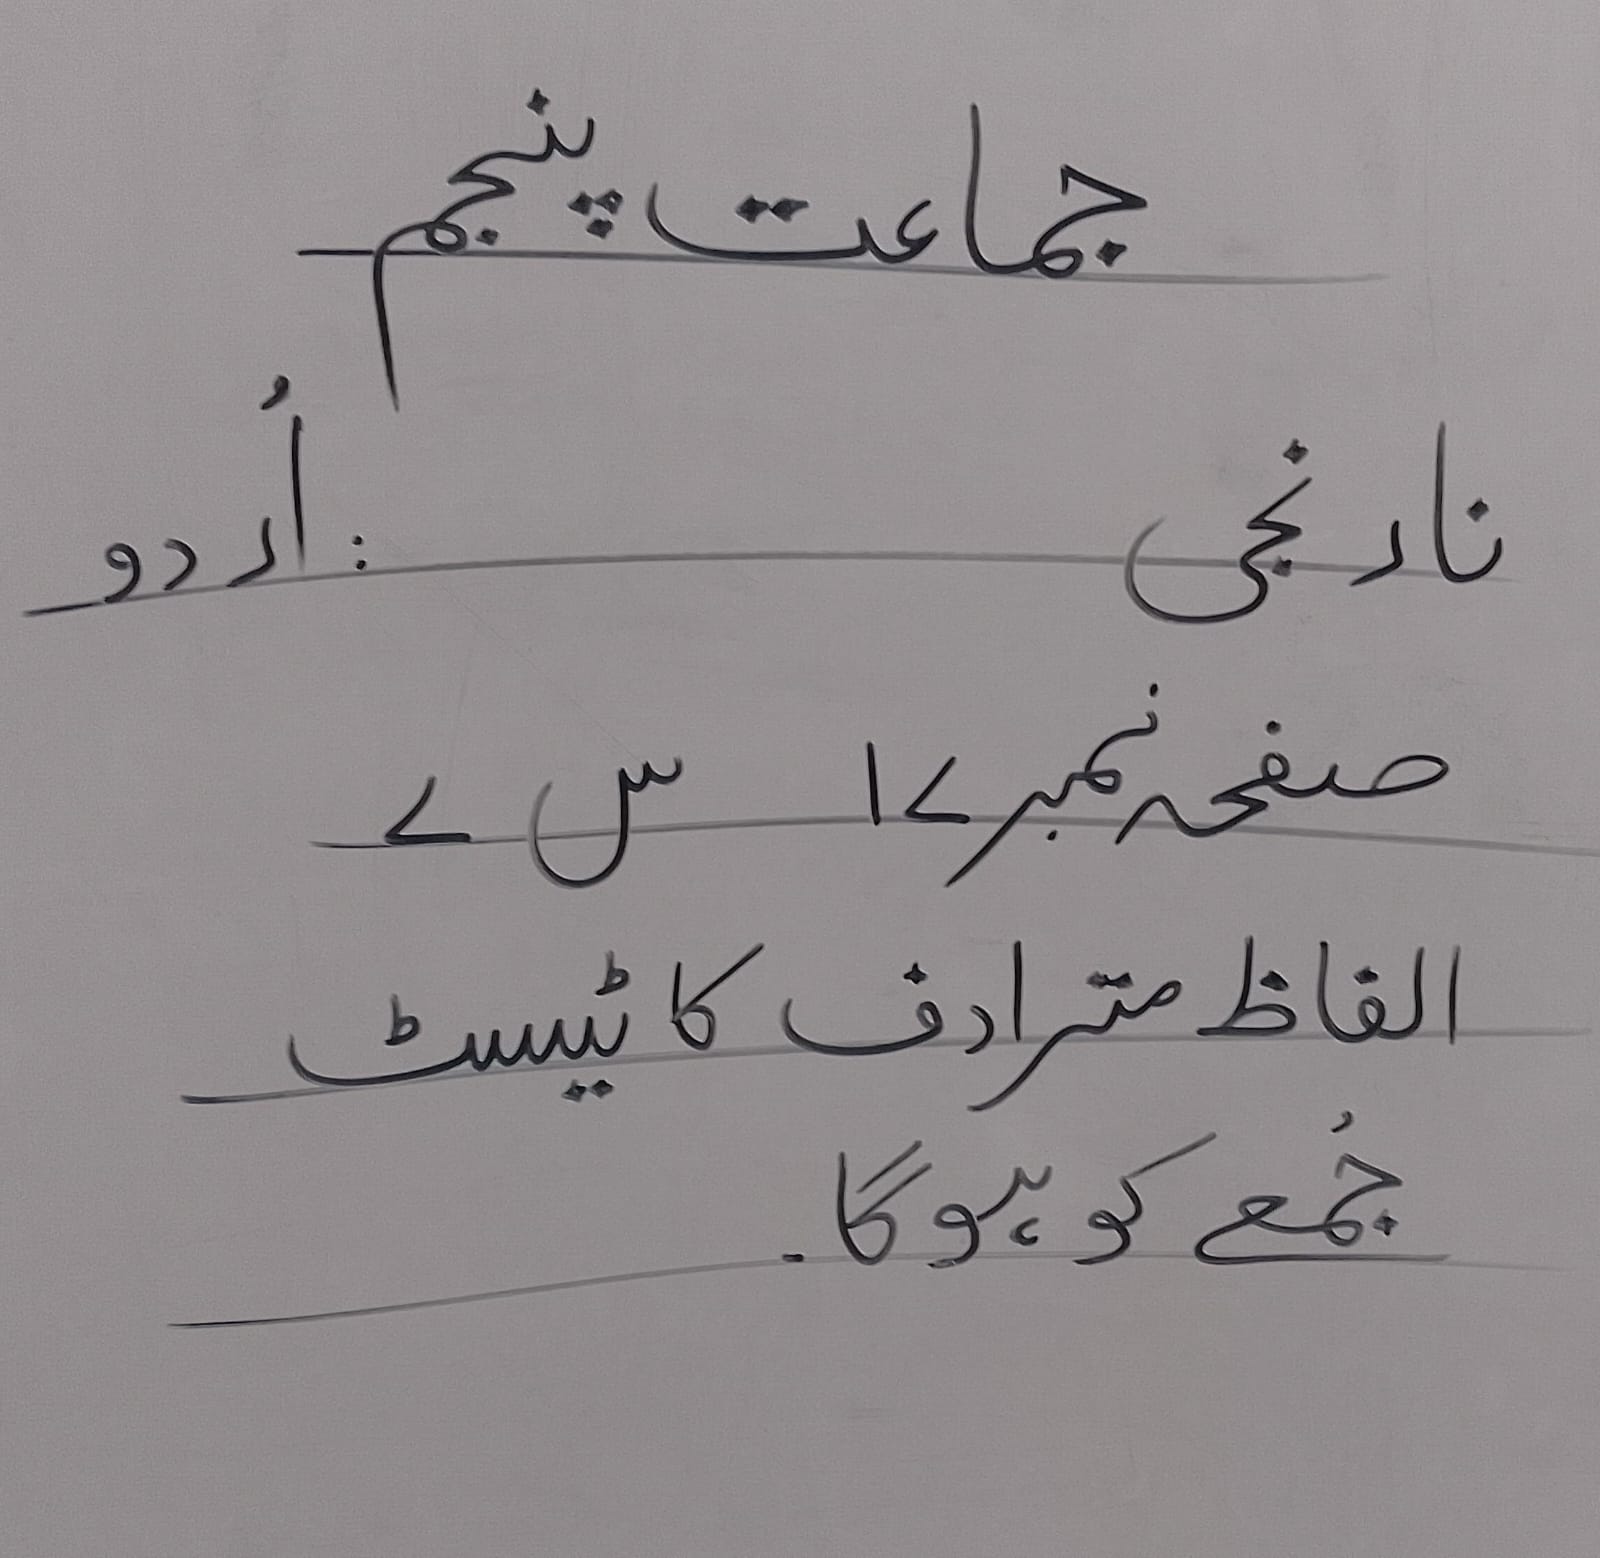 جماعت پنجم
نارنجی : اُردو
صفحہ نمبر ۱۷ س ۷
الفاظ مترادف کا ٹیسٹ
جُمعے کو ہوگا۔